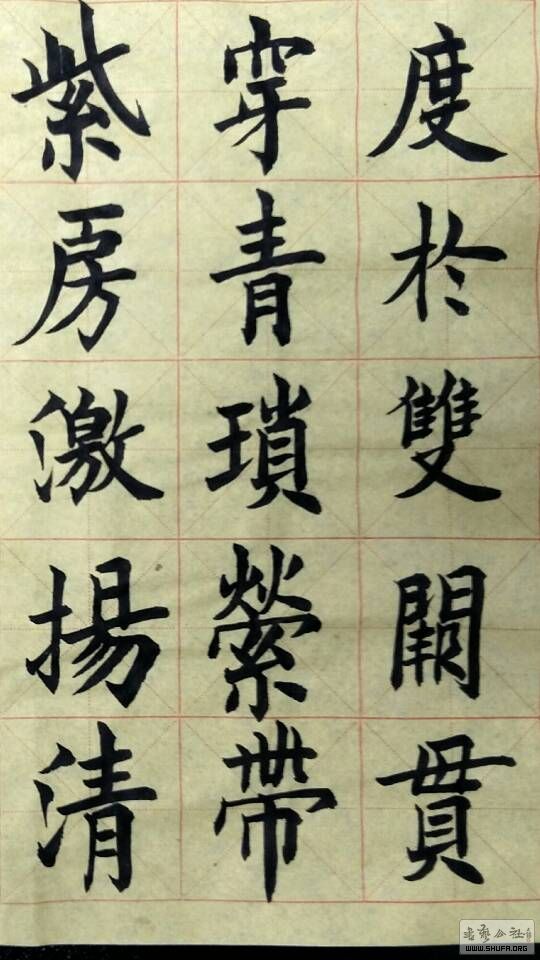 度於雙闕貫
穿青瑣縈帶
紫房激揚清
书艺公社
WWW.SHUFA.ORG